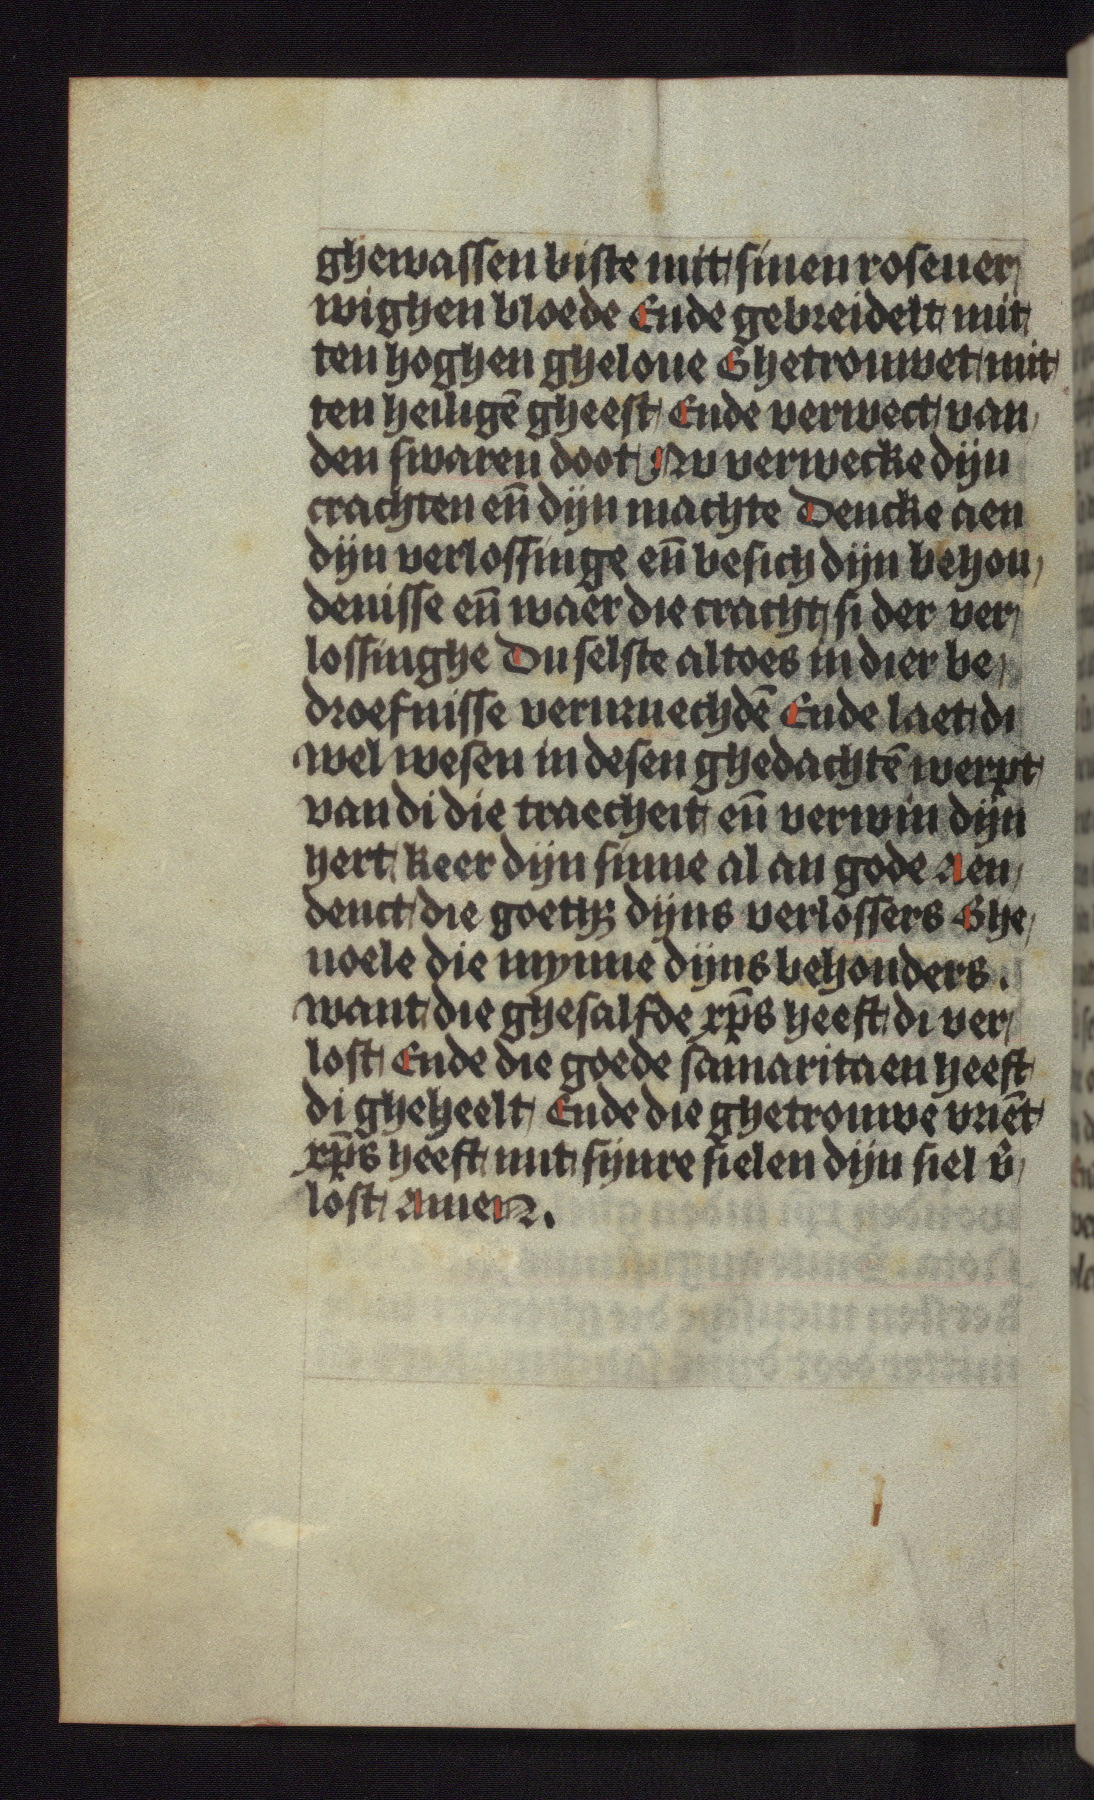 ghewassen biste mit sinen rosenver
wighen bloede Ende gebreidelt mit
ten hoghen gheloue Ghetrouwet mit
ten heiligē gheest Ende verwect van
den swaren doot Nu verwecke dijn
crachten en̄ dijn machte Dencke aen
dijn verlossinge en̄ besich dijn behou
denisse en̄ waer die cracht si der ver
lossinghe Du selste altoes in dier be
droefnisse vervruechdē Ende laet di
wel wesen in desen ghedachtē werpt
van di die traecheit en̄ verwin dijn
hert keer dijn sinne al an gode Aen
denct die goethꝫ dijns verlossers Ghe
uoele die mynne dijns behouders.
want die ghesalfde xp̄s heeft di ver
lost Ende die goede samaritaen heeft
di gheheelt Ende die ghetrouwe vriēt
xp̄s heeft mit sijnre sielen dijn siel v̄
lost Amen.